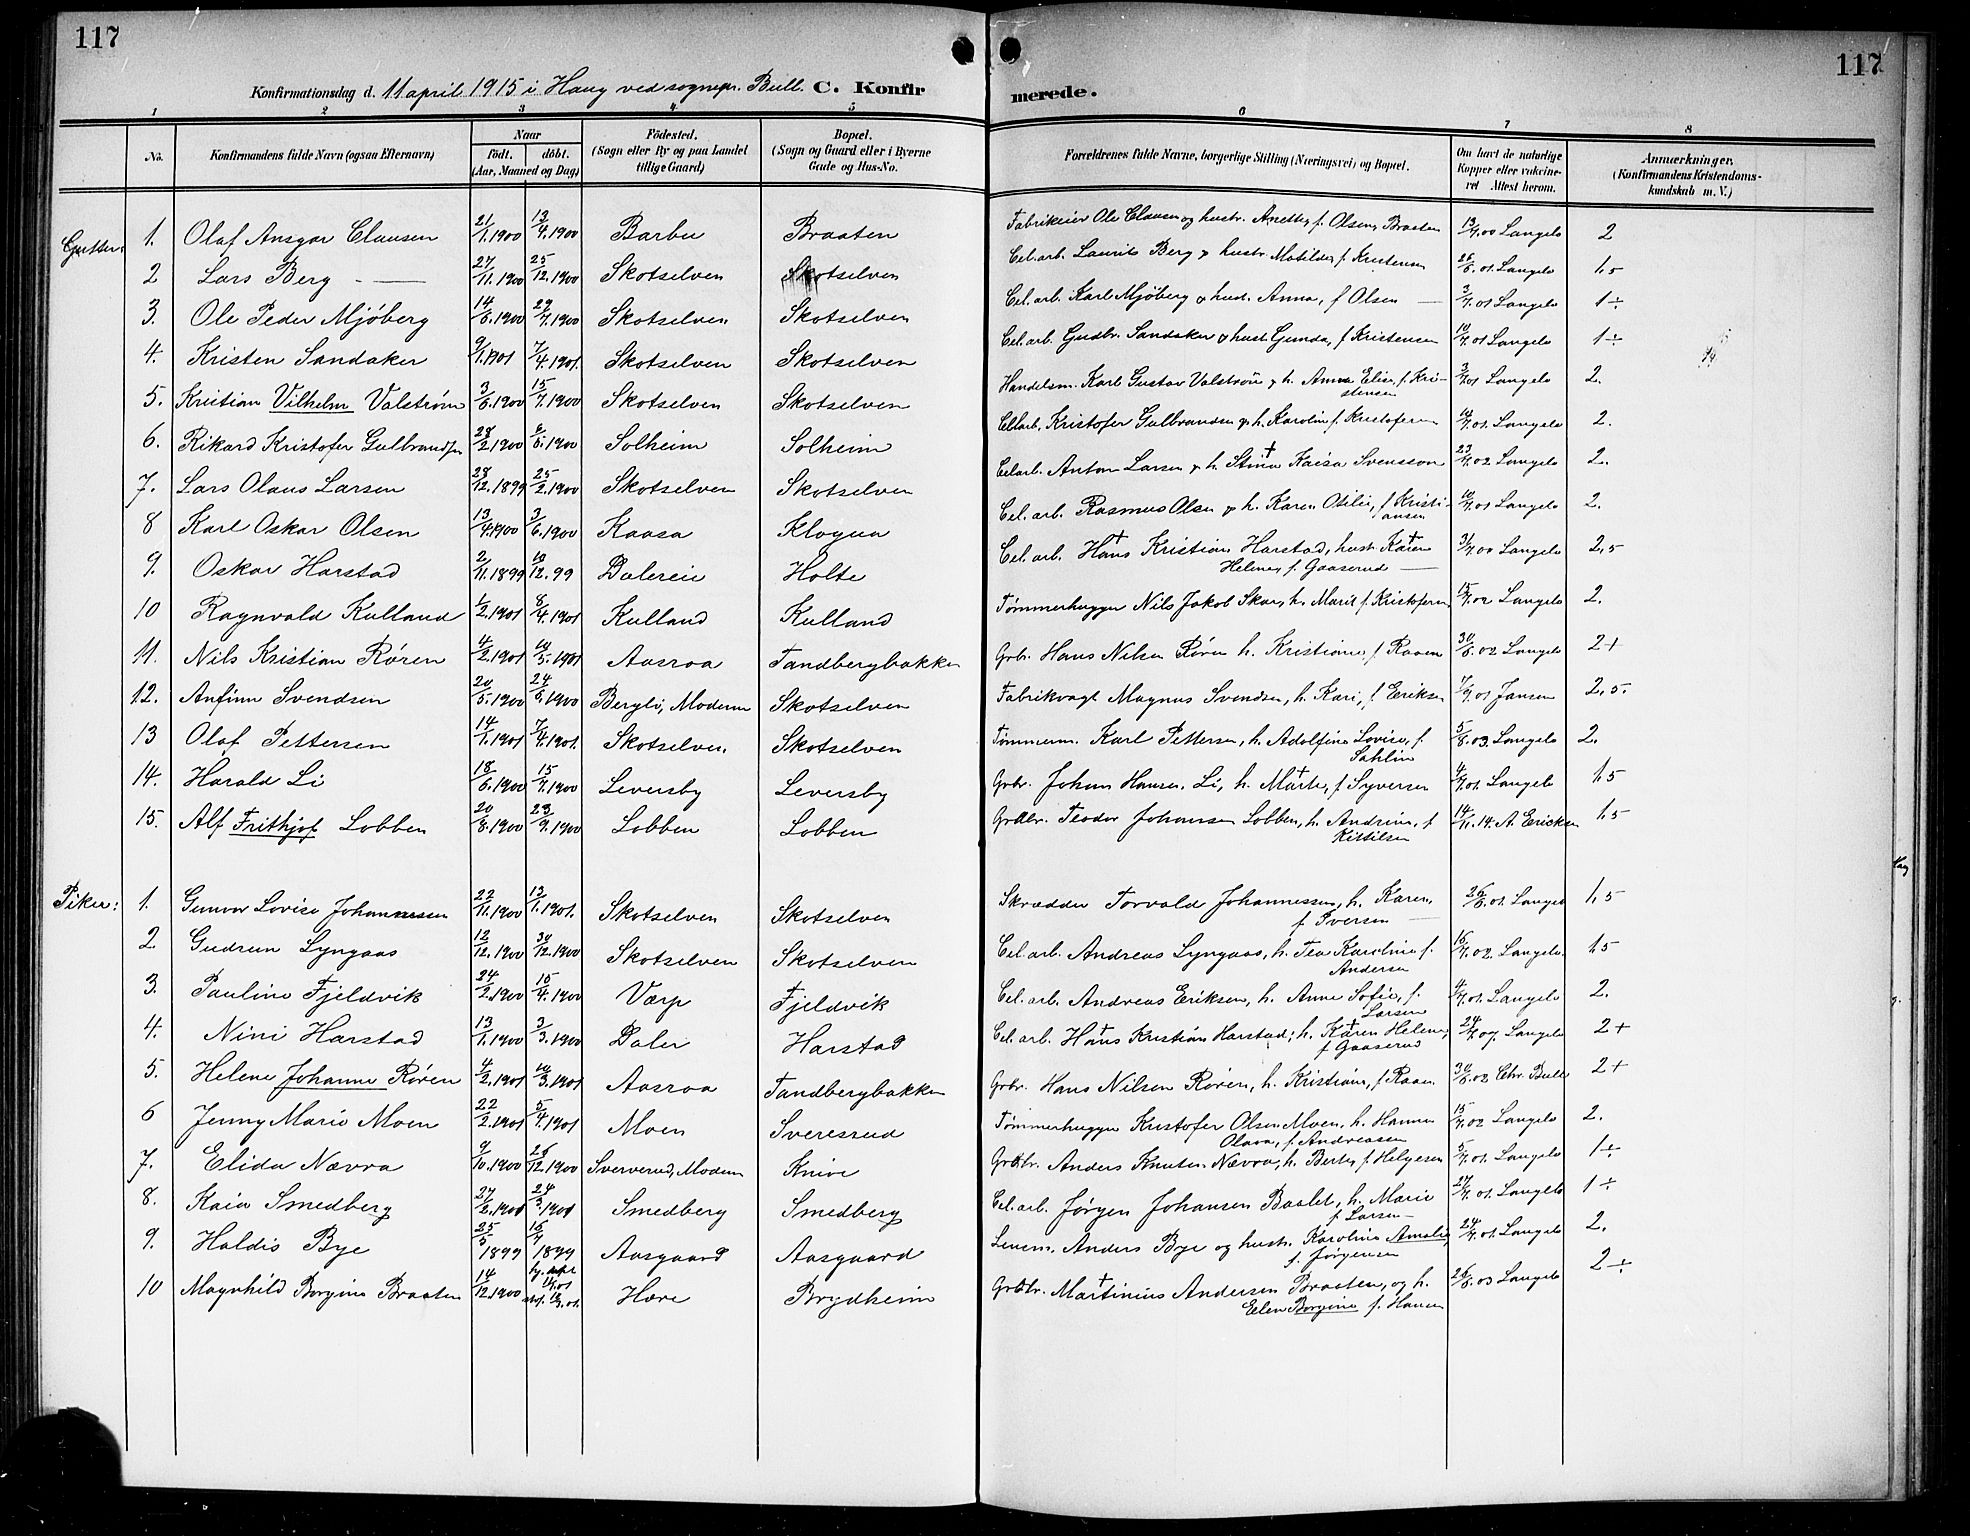 117
117
Konfirmationsdag d. 11 april 1915 i Haug ved sognepr. Bull. C. Konfirmerede.
1 2 3 4 5 6 7 8
No. Konfirmandens fulde Navn (ogsaa Efternavn) Naar födt. döbt. (Aar, Maaned og Dag) Födested. (Sogn eller By og paa Landet tillige Gaard) Bopæl. (Sogn og Gaard eller i Byerne Gade og Hus-No. Forældrenes fulde Navne, borgerlige Stilling (Næringsvei) og Bopæl. Om havt de naturlige Kopper eller vakcineret Attest herom. Anmærkninger. (Konfirmandens Kristendomskundskab m. V.)
Gutter: 1. Olaf Ansgar Clausen 21/1.1900 13/4.1900 Barbu Braaten Fabrikeier Ole Clausen og hustr. Anette, f. Olsen, Braaten 13/9.00 Langelo 2
2 Lars Berg 27/11.1900 25/12.1900 Skotselven Skotselven Cel. arb. Laurits Berg & hustr. Matilde, f. Kristensen 26/6.01 Langelo 1,5
3. Ole Peder Mjøberg 14/6.1900 22/7.1900 Skotselven Skotselven Cel. arb. Karl Mjøberg & hust. Anna, f Olsen 3/7.01 Langelo 1÷
4. Kristen Sandaker 9/1.1901 7/4.1901. Skotselven Skotselven Cel. arb. Gudbr. Sandaker & hust Gunda, f Kristensen 10/7.01 Langelo 1÷
5. Kristian Vilhelm Valstrøm 3/6.1900 15/7.1900 Skotselven Skotselven Handelsm. Karl Gustav Valstrøm & h. Anna Elise, f. Kristensen 3/7.01 Langelo 2.
6. Rikard Kristofer Gulbrandsen 28/2.1900 6/6.1900 Solheim Solheim Cel.arb. Kristofer Gulbrandsen & h. Karolin f. Kristofersen 10/7.01. Langelo 2.
7. Lars Olaus Larsen 28/12.1899 25/2.1900 Skotselven Skotselven Cel.arb. Anton Larsen & h. Stina † Kaisa Svensson 23/7.02 Langelo 2.
8 Karl Oskar Olsen 13/4.1900 3/6.1900 Kaasa Klogna Cel. arb. Rasmus Olsen & h. Karen Otilie, f Kristiansen 10/7.01 Langelo 2.
9. Oskar Harstad 2/11.1899 10/12.99 Dalereie Holte Cel. arb. Hans † Kristian Harstad, hust. Karen † Helene, f. Gaaserud 31/7.00 Langelo 2,5
10 Ragnvald Kulland 1/2.1901 8/4.1901 Kulland Kulland Tømmerhugger Nils Jakob Skar, h. Marit f. Kristofersen 15/7.02 Langelo 2.
11. Nils Kristian Røren 4/2.1901 10/3.1901 Aasroa Tandbergbakken Grbr. Hans Nilsen Røren h. Kristiane, f. Raaen 30/6.02 Langelo 2+
12. Anfinn Svendsen 20/5.1900 24/6.1900 Berglö, Modum Skotselven Fabrikvagt Magnus Svendsen, h. Kari, f Eriksen 7/9.01 Jansen 2,5.
13 Olaf Pettersen 14/1.1901 7/4.1901. Skotselven. Skotselven Tømmerm. Karl Pettersen, h. Adolfine Lovise, f. Sahlin 5/8.03. Langelo 2.
14. Harald Li 18/6.1900 15/7.1900 Leversby Leversby Grbr. Johan Hansen Li, h. Marte †, f Syversen 4/7.01. Langelo 1,5
15. Alf Frithjof Lobben 20/8.1900 23/9.1900 Lobben Lobben Grbr. Teodor Johansen Lobben, h. Andrine, f Kittilsen 14/11.14. A. Ericksen 1,5
Piker: 1. Gunvor Lovise Johannessen 22/11.1900 13/1.1901. Skotselven Skotselven Skrædder Torvald Johannessen, h. Karen, f Iversen 26/6.01. Langelo 1,5
2 Gudrun Lyngaas 12/12.1900 30/12.1900 Skotselven Skotselven Cel. arb. Andreas Lyngaas, h. Tea Karoline f. Andersen 16/7.02. Langelo. 1,5
3. Pauline Fjeldvik 24/2.1900 15/4.1900 Værp Fjeldvik Cel. arb. Andreas Eriksen, h. Anne Sofie, f. Larsen 4/7.01. Langelo 2.
4. Nini Harstad 13/1.1900 3/3.1900 Daler Harstad Cel. arb. Hans † Kristian Harstad, h. Karen † Helene, f Gaaserud 24/7.07. Langelo 2+
5. Helene Johanne Røren 4/2.1901 10/3.1901 Aasroa Tandbergbakken Grbr. Hans Nilsen Røren, h. Kristiane, f Raaen. 30/6.02 Chr. Bull 2+
6 Jenny Marie Moen 22/2.1901 5/4.1901 Moen Sveresrud Tømmerhugger Kristofer Olsen Moen, h. Hanna Olava, f. Andreassen 15/7.02 Langelo 2.
7. Elida Nævra 9/10.1900 26/12.1900 Sververud, Modum Knive Grbr. Anders Knutsen Nævra, h. Berte, f Helgesen 5/7.01. Langelo 1÷
8. Kaia Smedberg 27/2.1900 24/3.1900 Smedberg Smedberg Cel. arb. Jørgen Johansen Baalet, h. Marie f Larsen 27/7.01. Langelo 1÷
9. Haldis Bye 25/5 1899 16/7 1899 Aasgaard Aasgaard Levem. Anders Bye og hustr. Karoline Amalie, f. Jørgensen 24/7.01. Langelo 2.
10 Magnhild Borgine Braaten 14/12.1900 Hære Brydheim Grbr. Martinius † Andersen Braaten, og h. Elen Borgine f. Hansen 26/8.03 Langelo 2÷